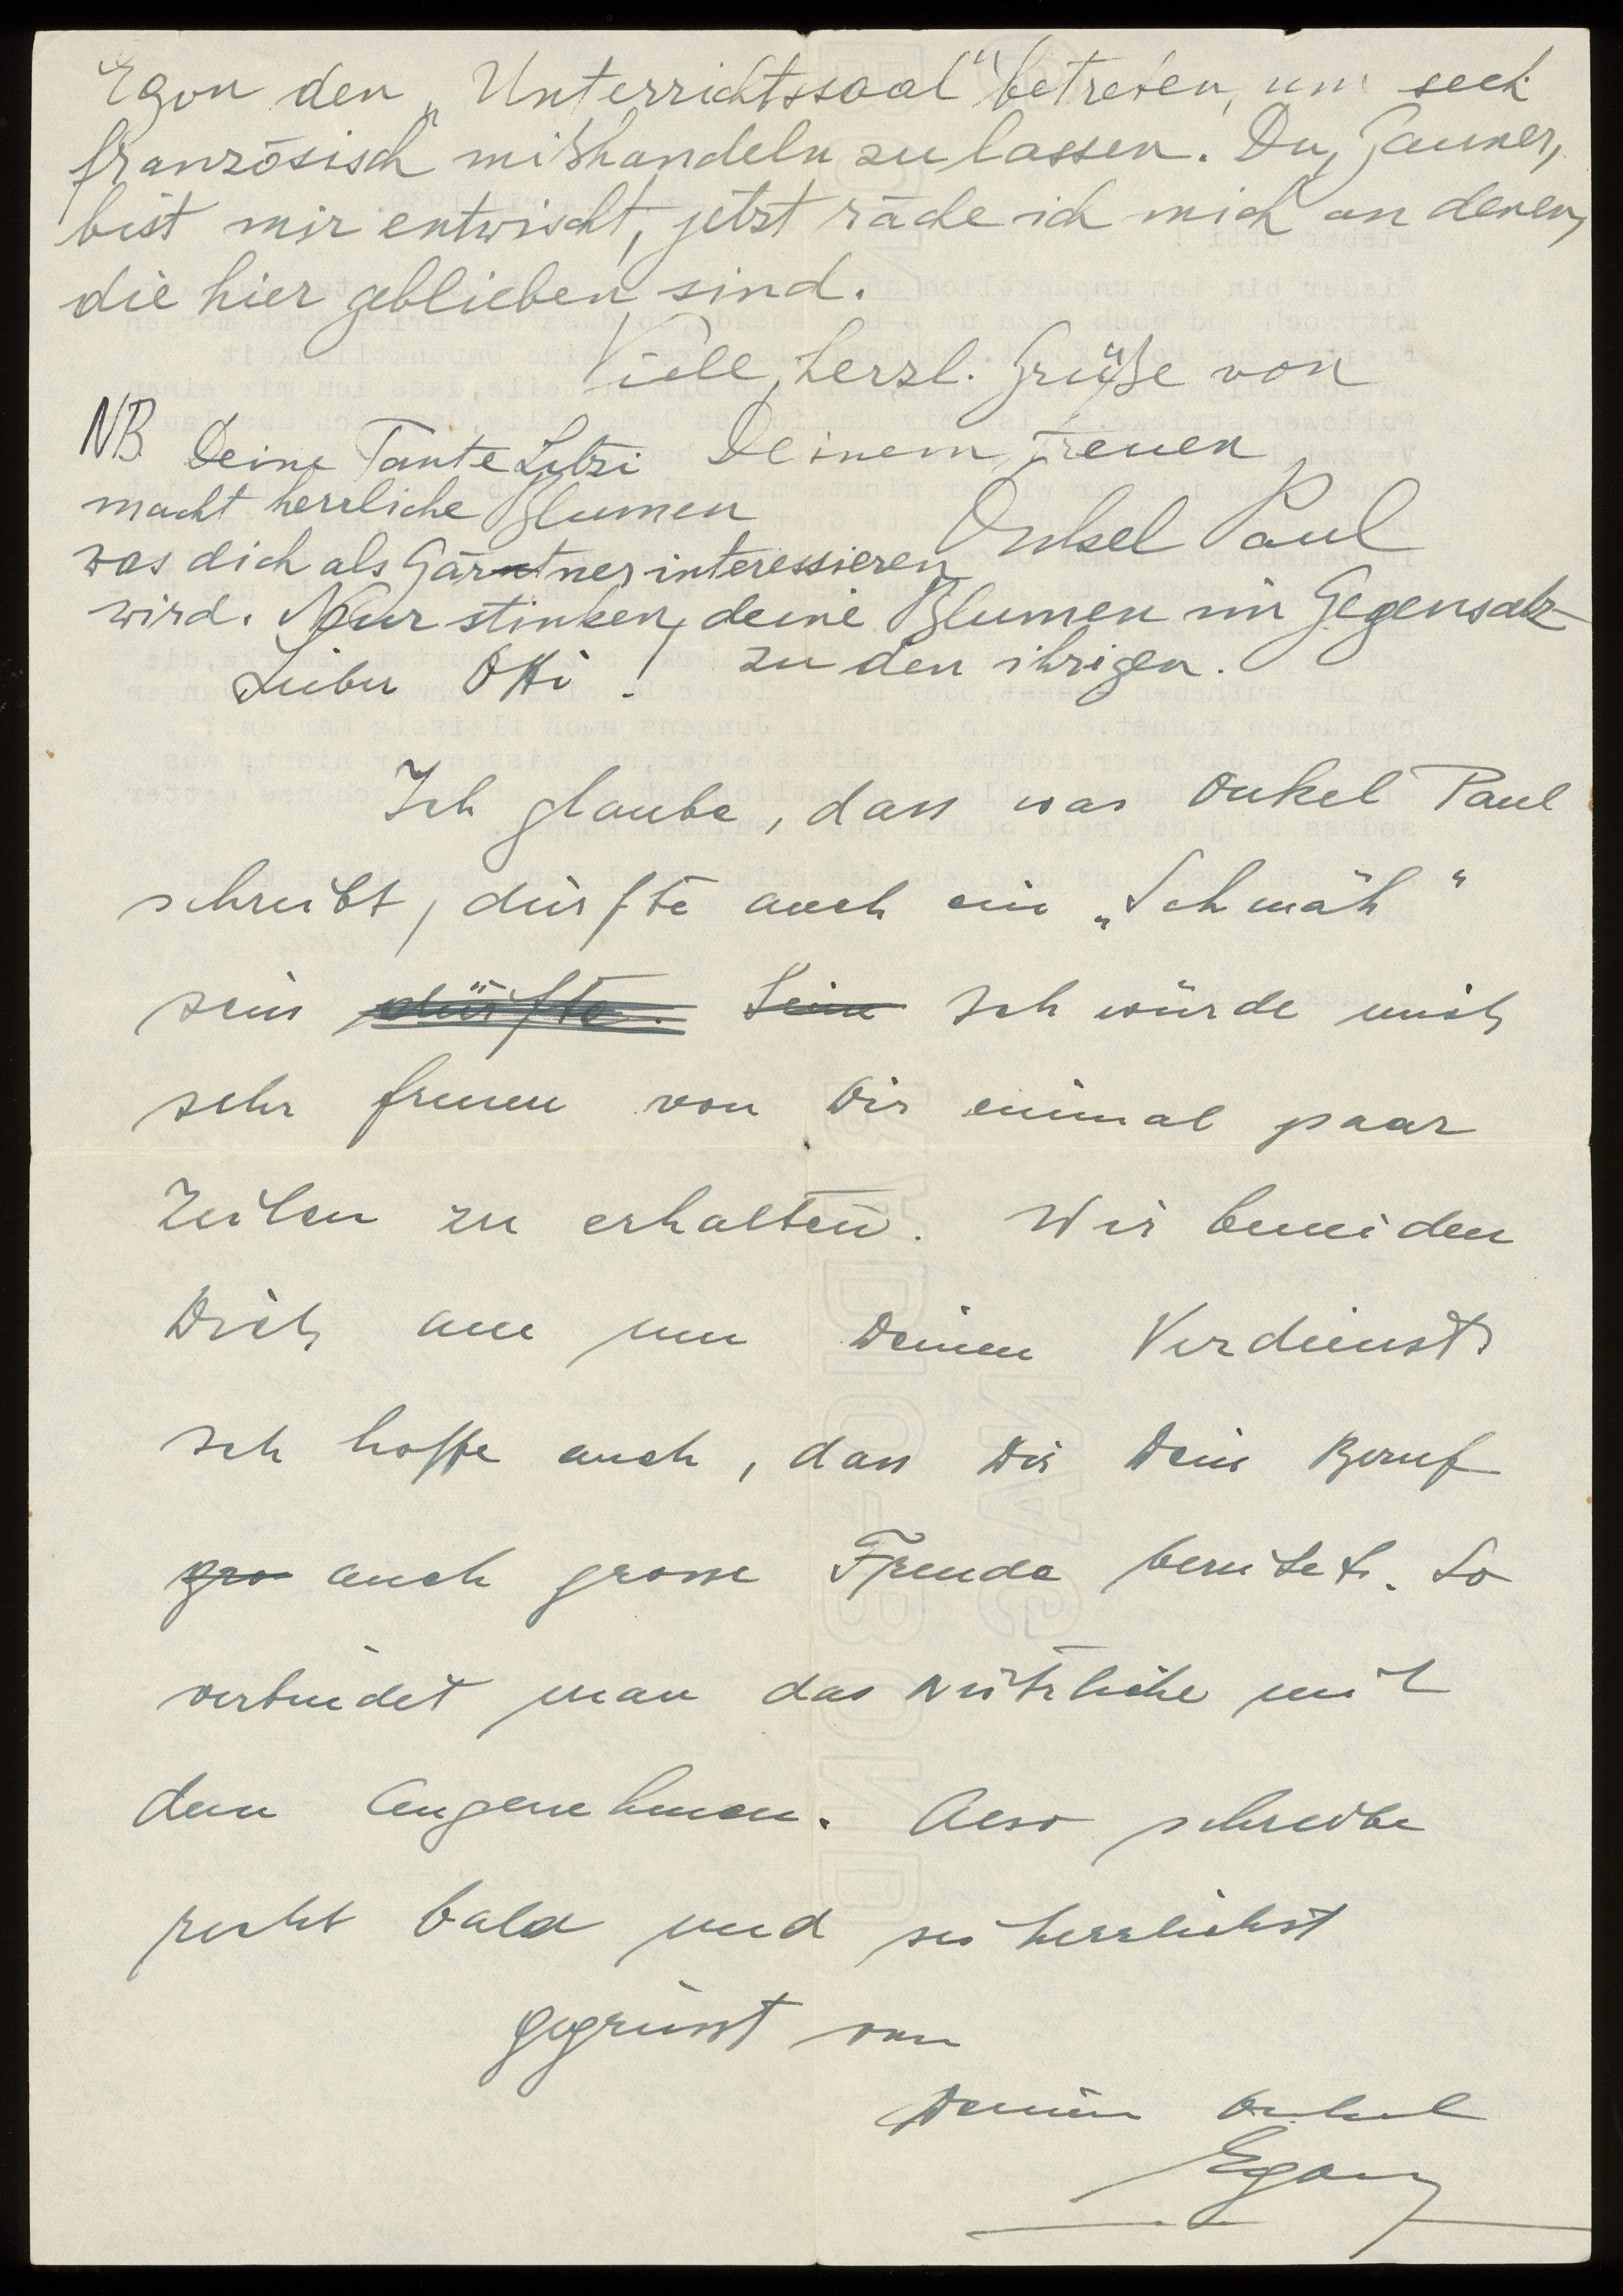 Egon den „Unterrichtssaal“ betreten, um sich
französisch mißhandeln zu lassen. Du, Gauner,
bist mir entwischt, jetzt räche ich mich an denen,
die hier geblieben sind.
Viele, herzl. Grüße von
Deinem treuen
Onkel Paul
NB. Deine Tante
macht herrliche Blumen
was dich als Gärtner interessieren
wird. Nur stinken, deine Blumen im Gegensatz
zu den ihrigen.
Lieber Otti!
Ich glaube, dass was Onkel Paul
schreibt, dürfte auch ein „Schmäh“
sein dürfte. Sein Ich würde mich
sehr freuen von Dir einmal paar
Zeilen zu erhalten. Wir beneiden
Dich alle um Deinen Verdienst
Ich hoffe auch, dass Dir Dein Beruf
gro auch grosse Freude bereitet. So
verbindet man das Nützliche mit
dem Angenehmen. Also schreibe
recht bald und sei herzlichst
gegrüsst von
Deinem Onkel
Egon